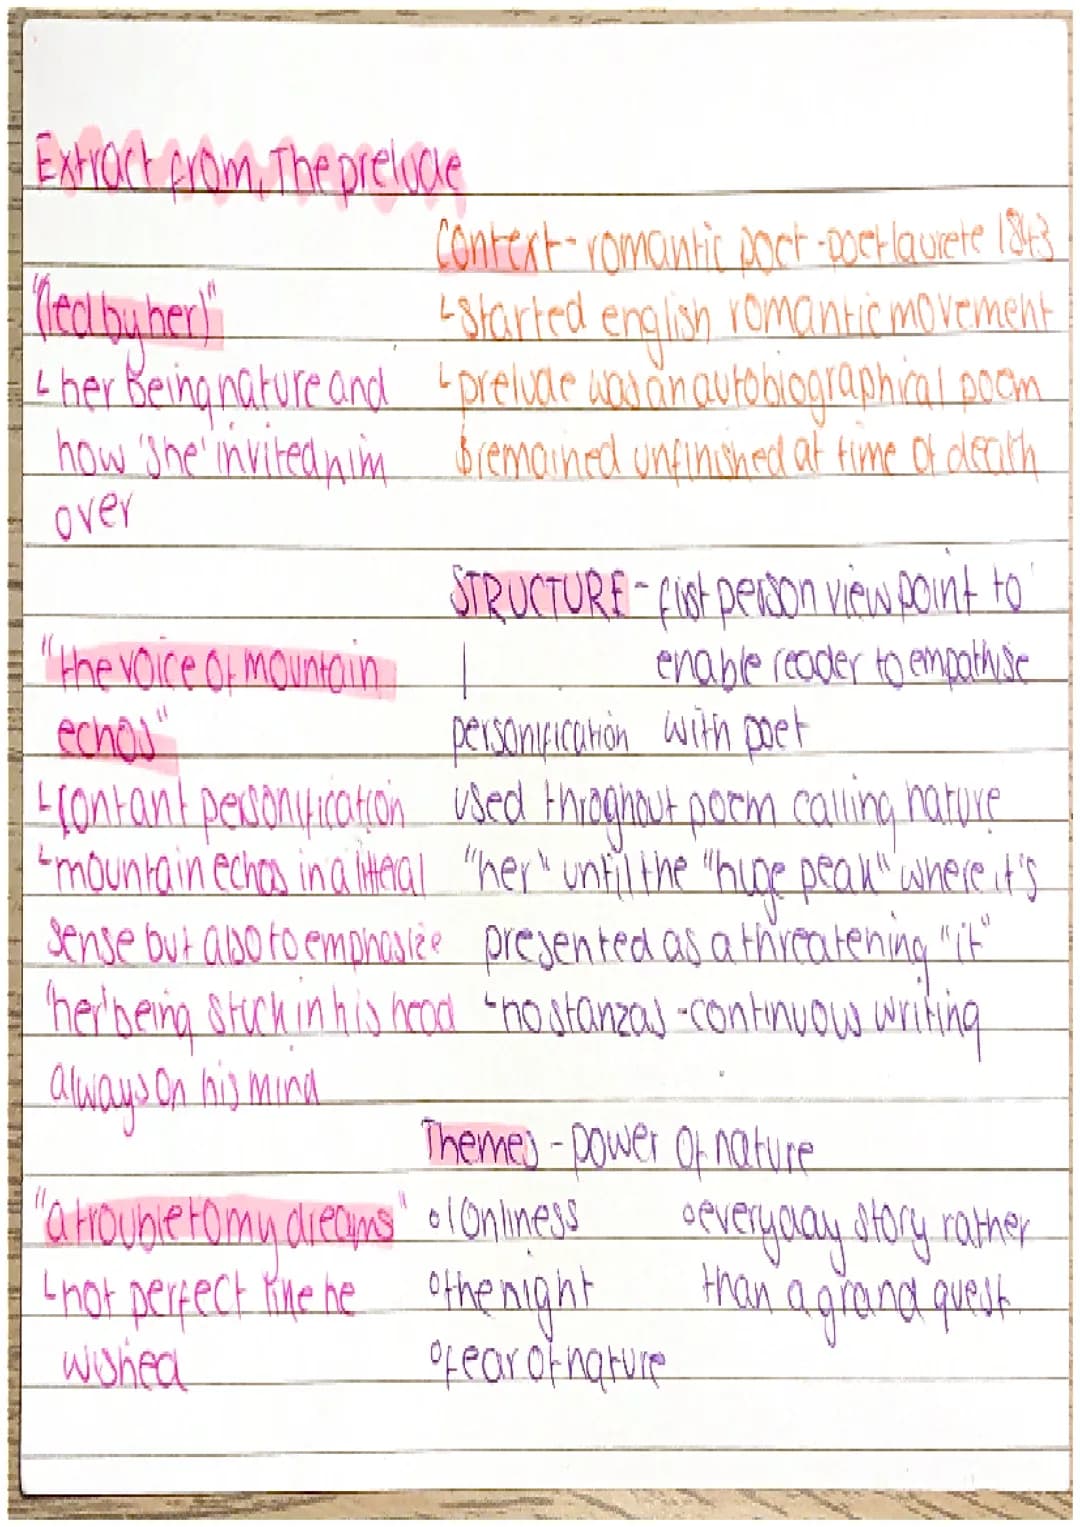 Extract from, The prelude
Context - romantic poet - poet laurete 1843
└ started english romantic movement
└ prelude was an autobiographical poem
& remained unfinished at time of death
"(led by her)"
└ her being nature and
how 'she' invited him
over
STRUCTURE - first person view point to
enable reader to empathise
with poet
personification
used throghout poem calling nature
"her" until the "huge peak" where it's
presented as a threatening "it"
└ no stanzas - continuous writing
"the voice of mountain
echos"
└ contant personification
└ mountain echos in a litteral
sense but also to emphasize
'her' being stuck in his head
always on his mind
Themes - power of nature
∘ lonliness
∘ the night
∘ fear of nature
∘ everyday story rather
than a grand quest.
"a trouble to my dreams"
└ not perfect like he
wished